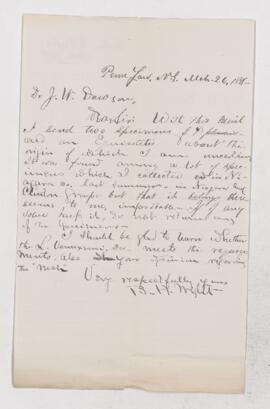 Penn Yan, N.Y. Mch. 26, 188
Dr. J. W. Dawson,
Dear Sir: With this mail
I send two specimens of
and an about the
origin of which I am uncertain
It was found among a lot of speci-
mens which I collected in Ni-
agara Co, last summer, in Niagara and
Clinton groups but that it belongs there
seems to me, improbable. If of any
value keep it, do not return any
of the specimens.
I should be glad to learn whether
the L. Vanuxemi, meets the require-
ments; also your opinion regarding
the "
Very respectfully yours
B. H. Wright